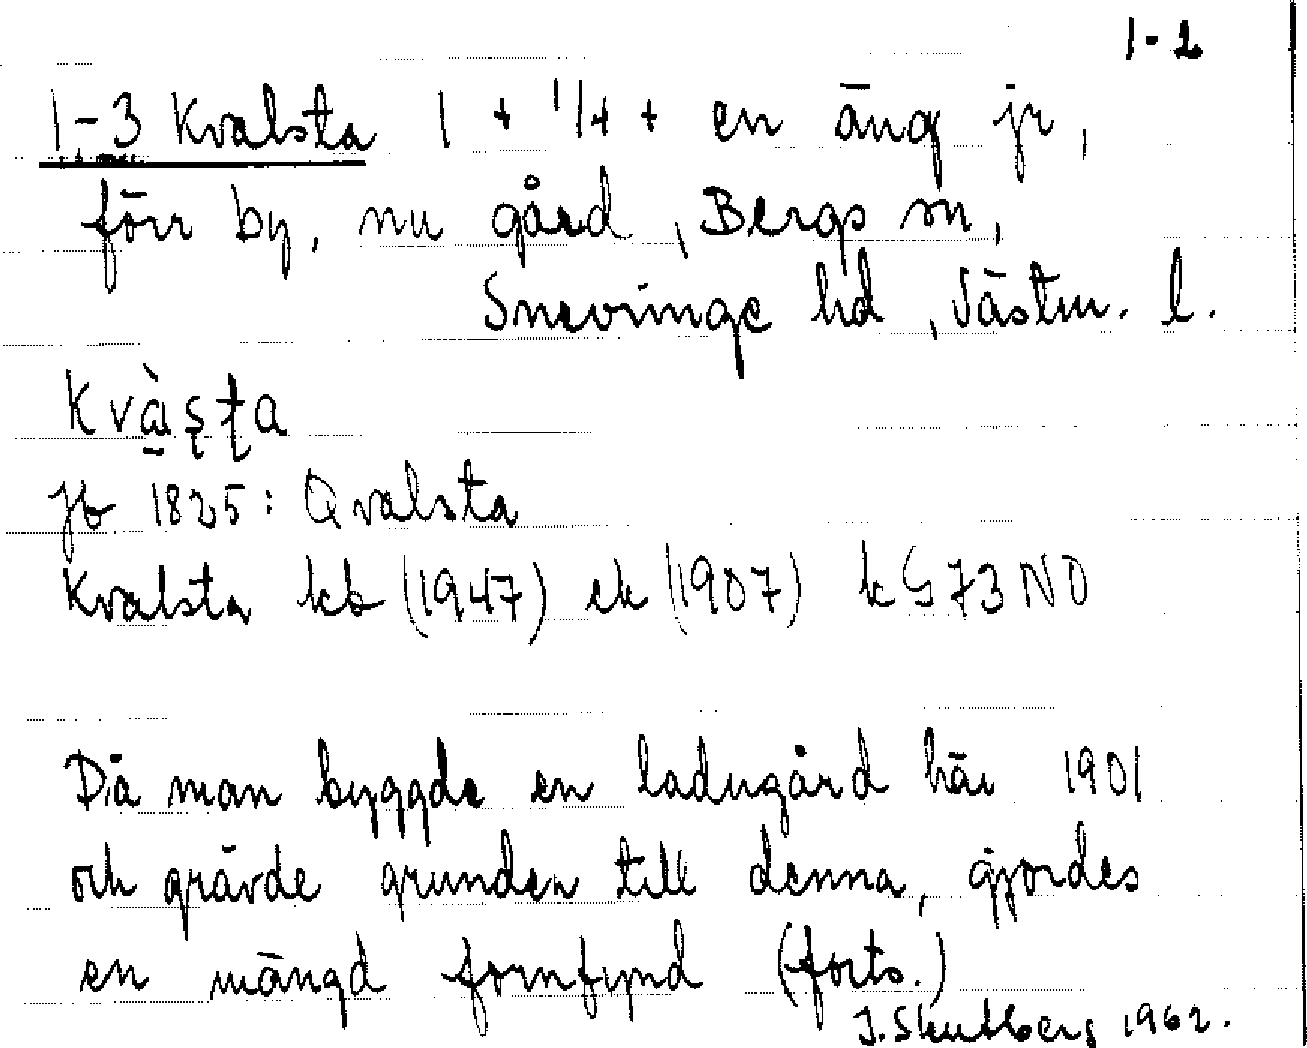 1-2
1-3 Kvalsta 1 + 1/4 + en äng jr,
förr by, nu gård, Bergs sn,
Snevringe hd, Västm. l.
Kvàsta
Jb 1825: Qvalsta
Kvalsta kb (1947) ek (1907) k G 73 NO
Då man byggde en ladugård här 1901
och grävde grunden till denna, gjordes
en mängd fornfynd (forts.)
1962.